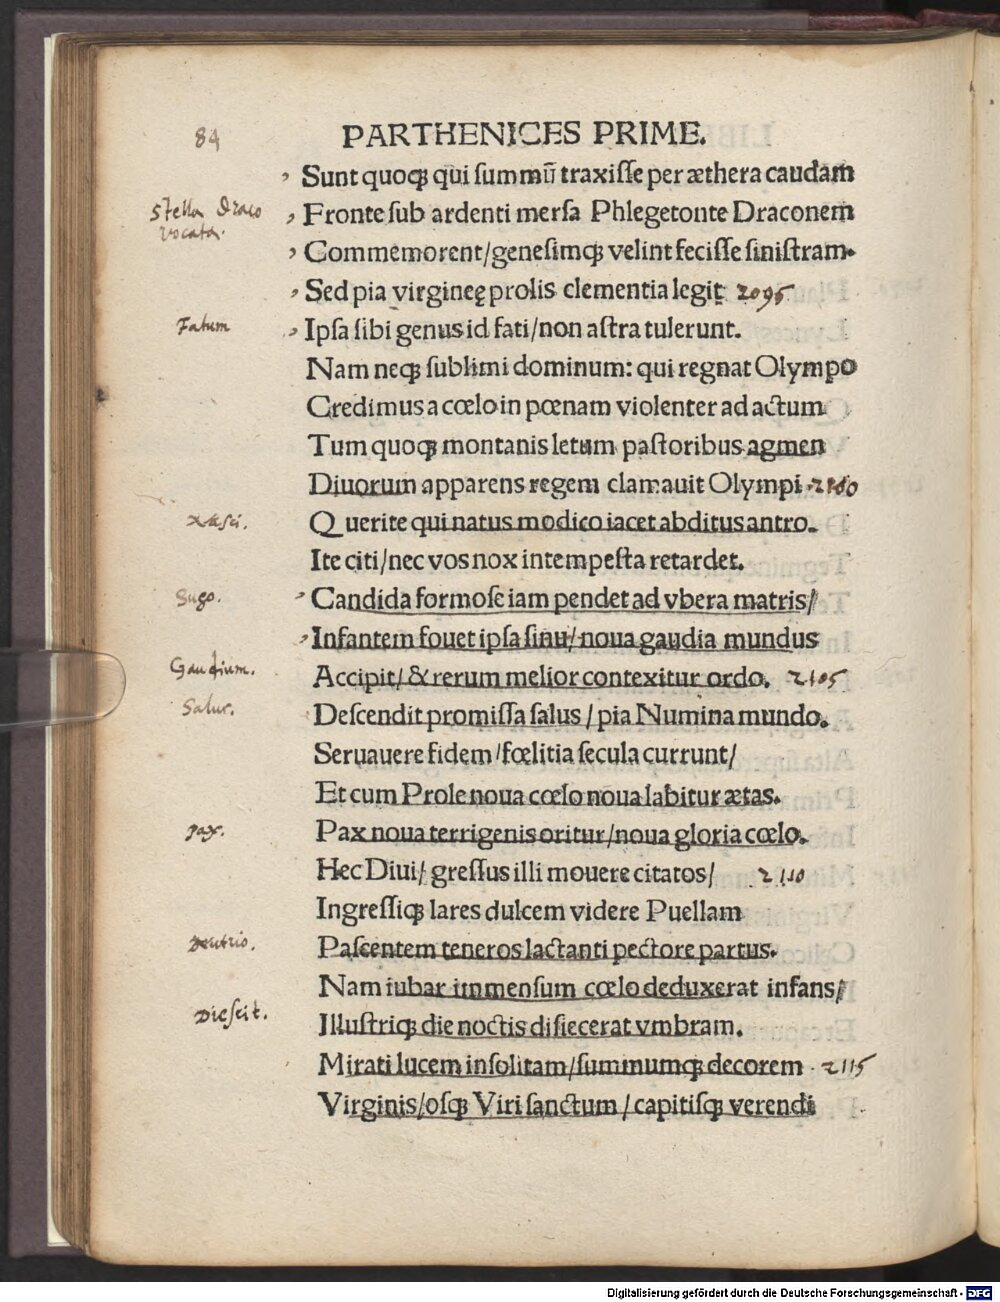 84
PARTHENICES PRIME.
Sunt quoqꝫ qui ſummū traxiſſe per æthera caudam
Stella Draco
vocata.
Fronte ſub ardenti merſa Phlegetonte Draconem
Commemorent/geneſimqꝫ velint feciſſe ſiniſtram.
Sed pia virgineę prolis clementia legit 2095
Fatum
Ipſa ſibi genus id fati/non aſtra tulerunt.
Nam neqꝫ ſublimi dominum: qui regnat Olympo
Credimus a cœlo in pœnam violenter ad actum
Tum quoqꝫ montanis letum paſtoribus agmen
Diuorum apparens regem clamauit Olympi 2100
Nasci.
Q uerite qui natus modico iacet abditus antro.
Ite citi/nec vos nox intempeſta retardet.
Sugo.
Candida formoſe iam pendet ad vbera matris/
Infantem fouet ipſa ſinu/noua gaudia mundus
Gaudium.
Accipit/& rerum melior contexitur ordo. 2105
Salus.
Deſcendit promiſſa ſalus/pia Numina mundo.
Seruauere fidem/fœlitia ſecula currunt/
Et cum Prole noua cœlo noua labitur ætas.
pax.
Pax noua terrigenis oritur/noua gloria cœlo.
Hec Diui/greſſus illi mouere citatos/ 2110
Ingreſſiqꝫ lares dulcem videre Puellam
Nutrio.
Paſcentem teneros lactanti pectore partus.
Nam iubar immenſum cœlo deduxerat infans/
Dieſcit.
Illuſtriqꝫ die noctis diſiecerat vmbram.
Mirati lucem inſolitam/ſummumqꝫ decorem 2115
Virginis/oſqꝫ Viri ſanctum/capitiſqꝫ verendi
Digitalisierung gefördert durch die Deutsche Forschungsgemeinschaft - DFG